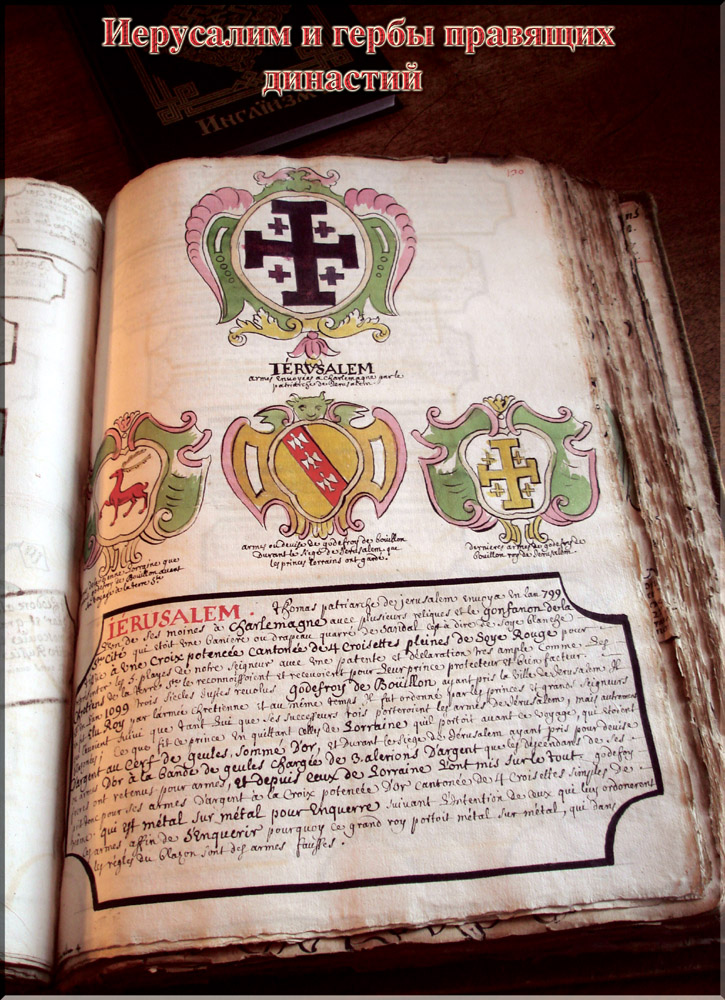 Иерусалим и гербы правящих
династий
Инглїизм
130
IÉRVSALEM
armes Envoyées a charlemagne par le
patriarche de Jerusalem.
armes ou devise de godefroy de bouillon
Durant le Siege de Jerusalem, que
les princes lorrains ont gardé.
dernieres armes de godefroy de
bouillon roy de Jerusalem.
Lorraine que
godefroy de Bouillon avant
voyage de la terre Ste
IERUSALEM. Thomas patriarche de jerusalem envoya en l'an 799
de ses moines à Charlemagne avec plusieurs reliques et le gonfanon de la
Ste Cité qui étoit une baniere ou drapeau quarré de Sandal c'est à dire de soye blanche
à une Croix potencée Cantonée de 4 Croisettes pleines de Soye Rouge pour
les 5. playes de notre seigneur avec une patente et déclaration tres ample comme des
de la terre Ste le reconnoissoient et recevoient pour leur prince protecteur et bien facteur.
1099 trois Siecles justes revolus godefroy de Bouillon ayant pris la Ville de Jerusalem Il
Elu Roy par l'armée Chrétienne et au même temps, Il fut ordonné par les princes et grands seigneurs
Suivi que tant lui que ses successeurs rois porteroient les armes de Jerusalem, mais autrement
Ce que fit ce prince En quittant Celles de Lorraine qu'il portoit avant ce voyage, qui étoient
D'argent au Cerf de geules, somme D'or, et durant le siege de Jerusalem ayant pris pour devise
D'or à la Bande de geules chargée de 3. alerions D'argent que les descendans de ses
ont retenus pour armes, et Depuis ceux de Lorraine l'ont mis sur le tout. godefroy
pour ses armes D'argent à la Croix potencée D'or cantonée de 4 Croisettes simples de
qui est métal sur métal pour Enquerre suivant l'intention de ceux qui luy ordonnerent
les armes affin de S'enquerir pourquoy ce grand roy portoit métal sur métal, qui dans
les régles du blazon sont des armes fausses.